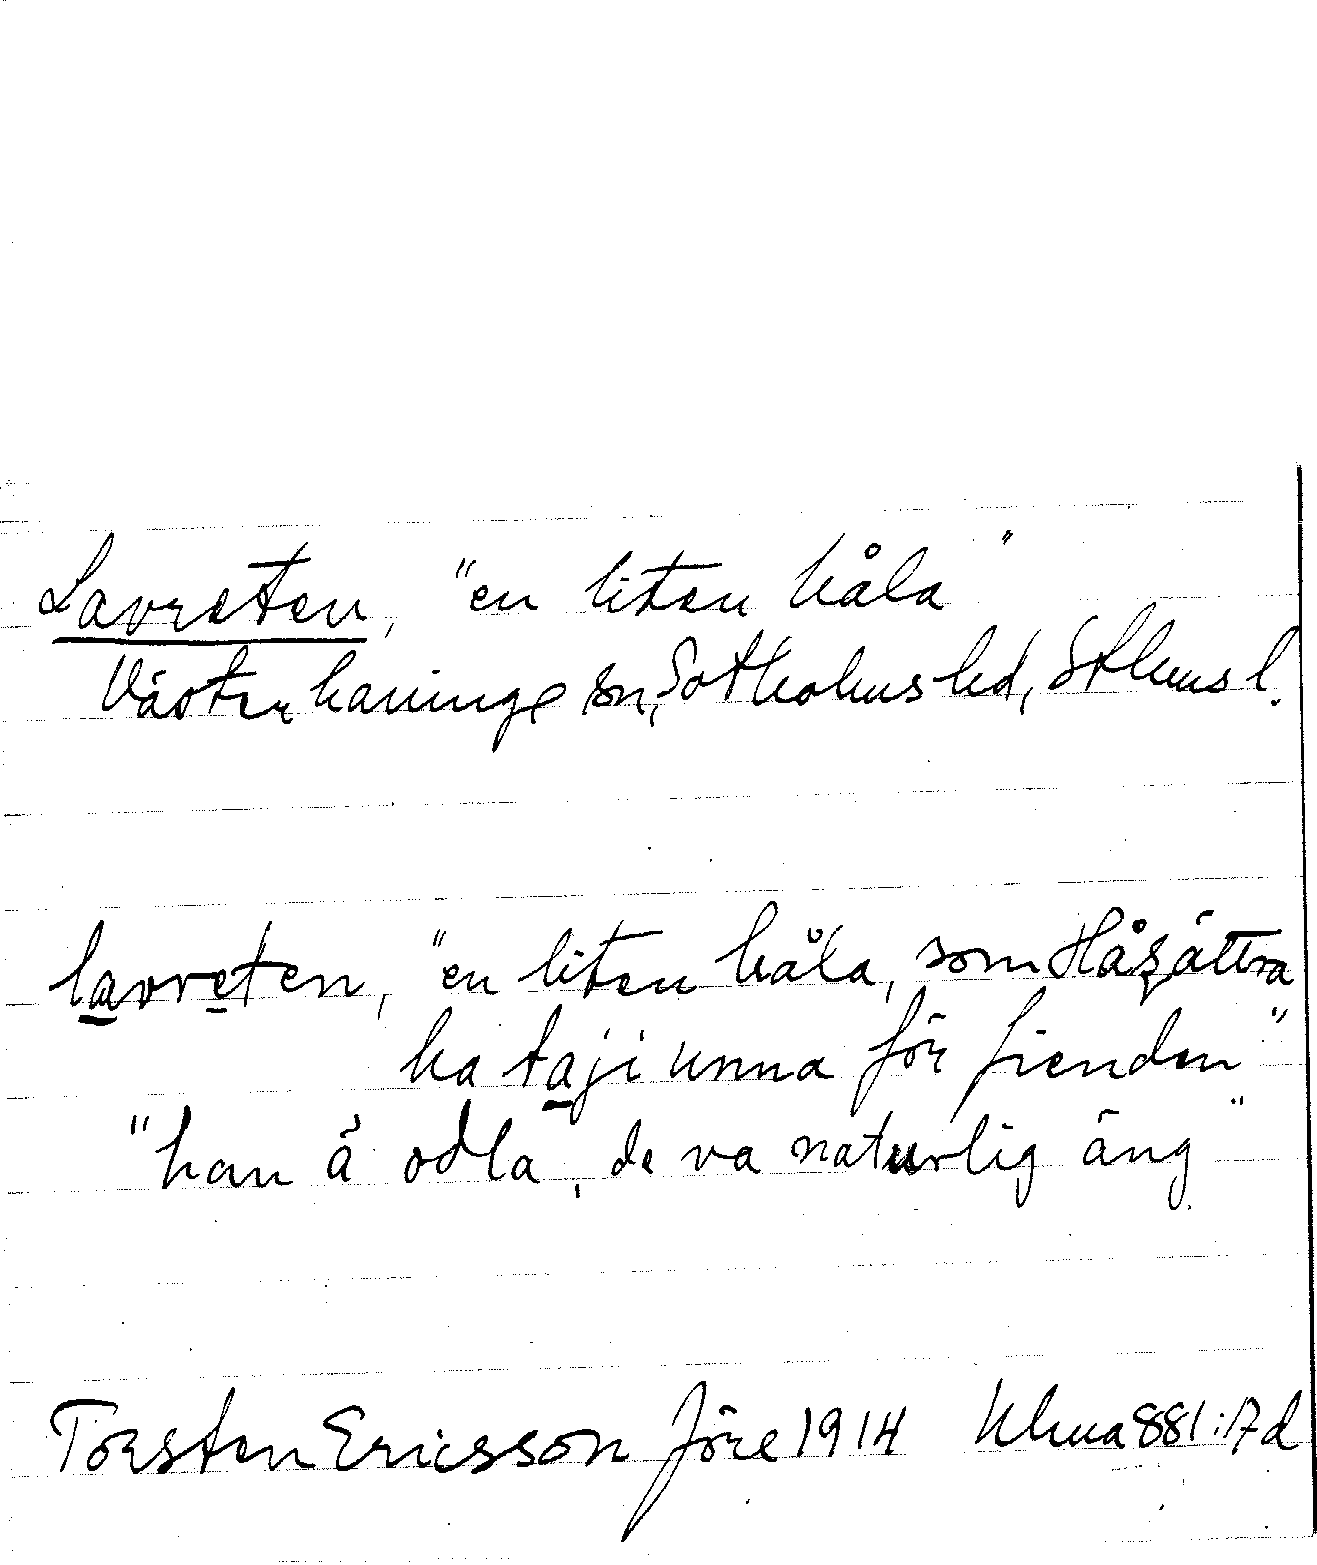 Lavreten, "en liten håla"
Västerhaninge sn, Sotholms hd, Sthlms l.
lavreten, "en liten håla, som Håsättra
ha taji unna för fienden"
"han ä odla, de va naturlig äng"
Torsten Ericsson före 1914 Ulma 881:17d